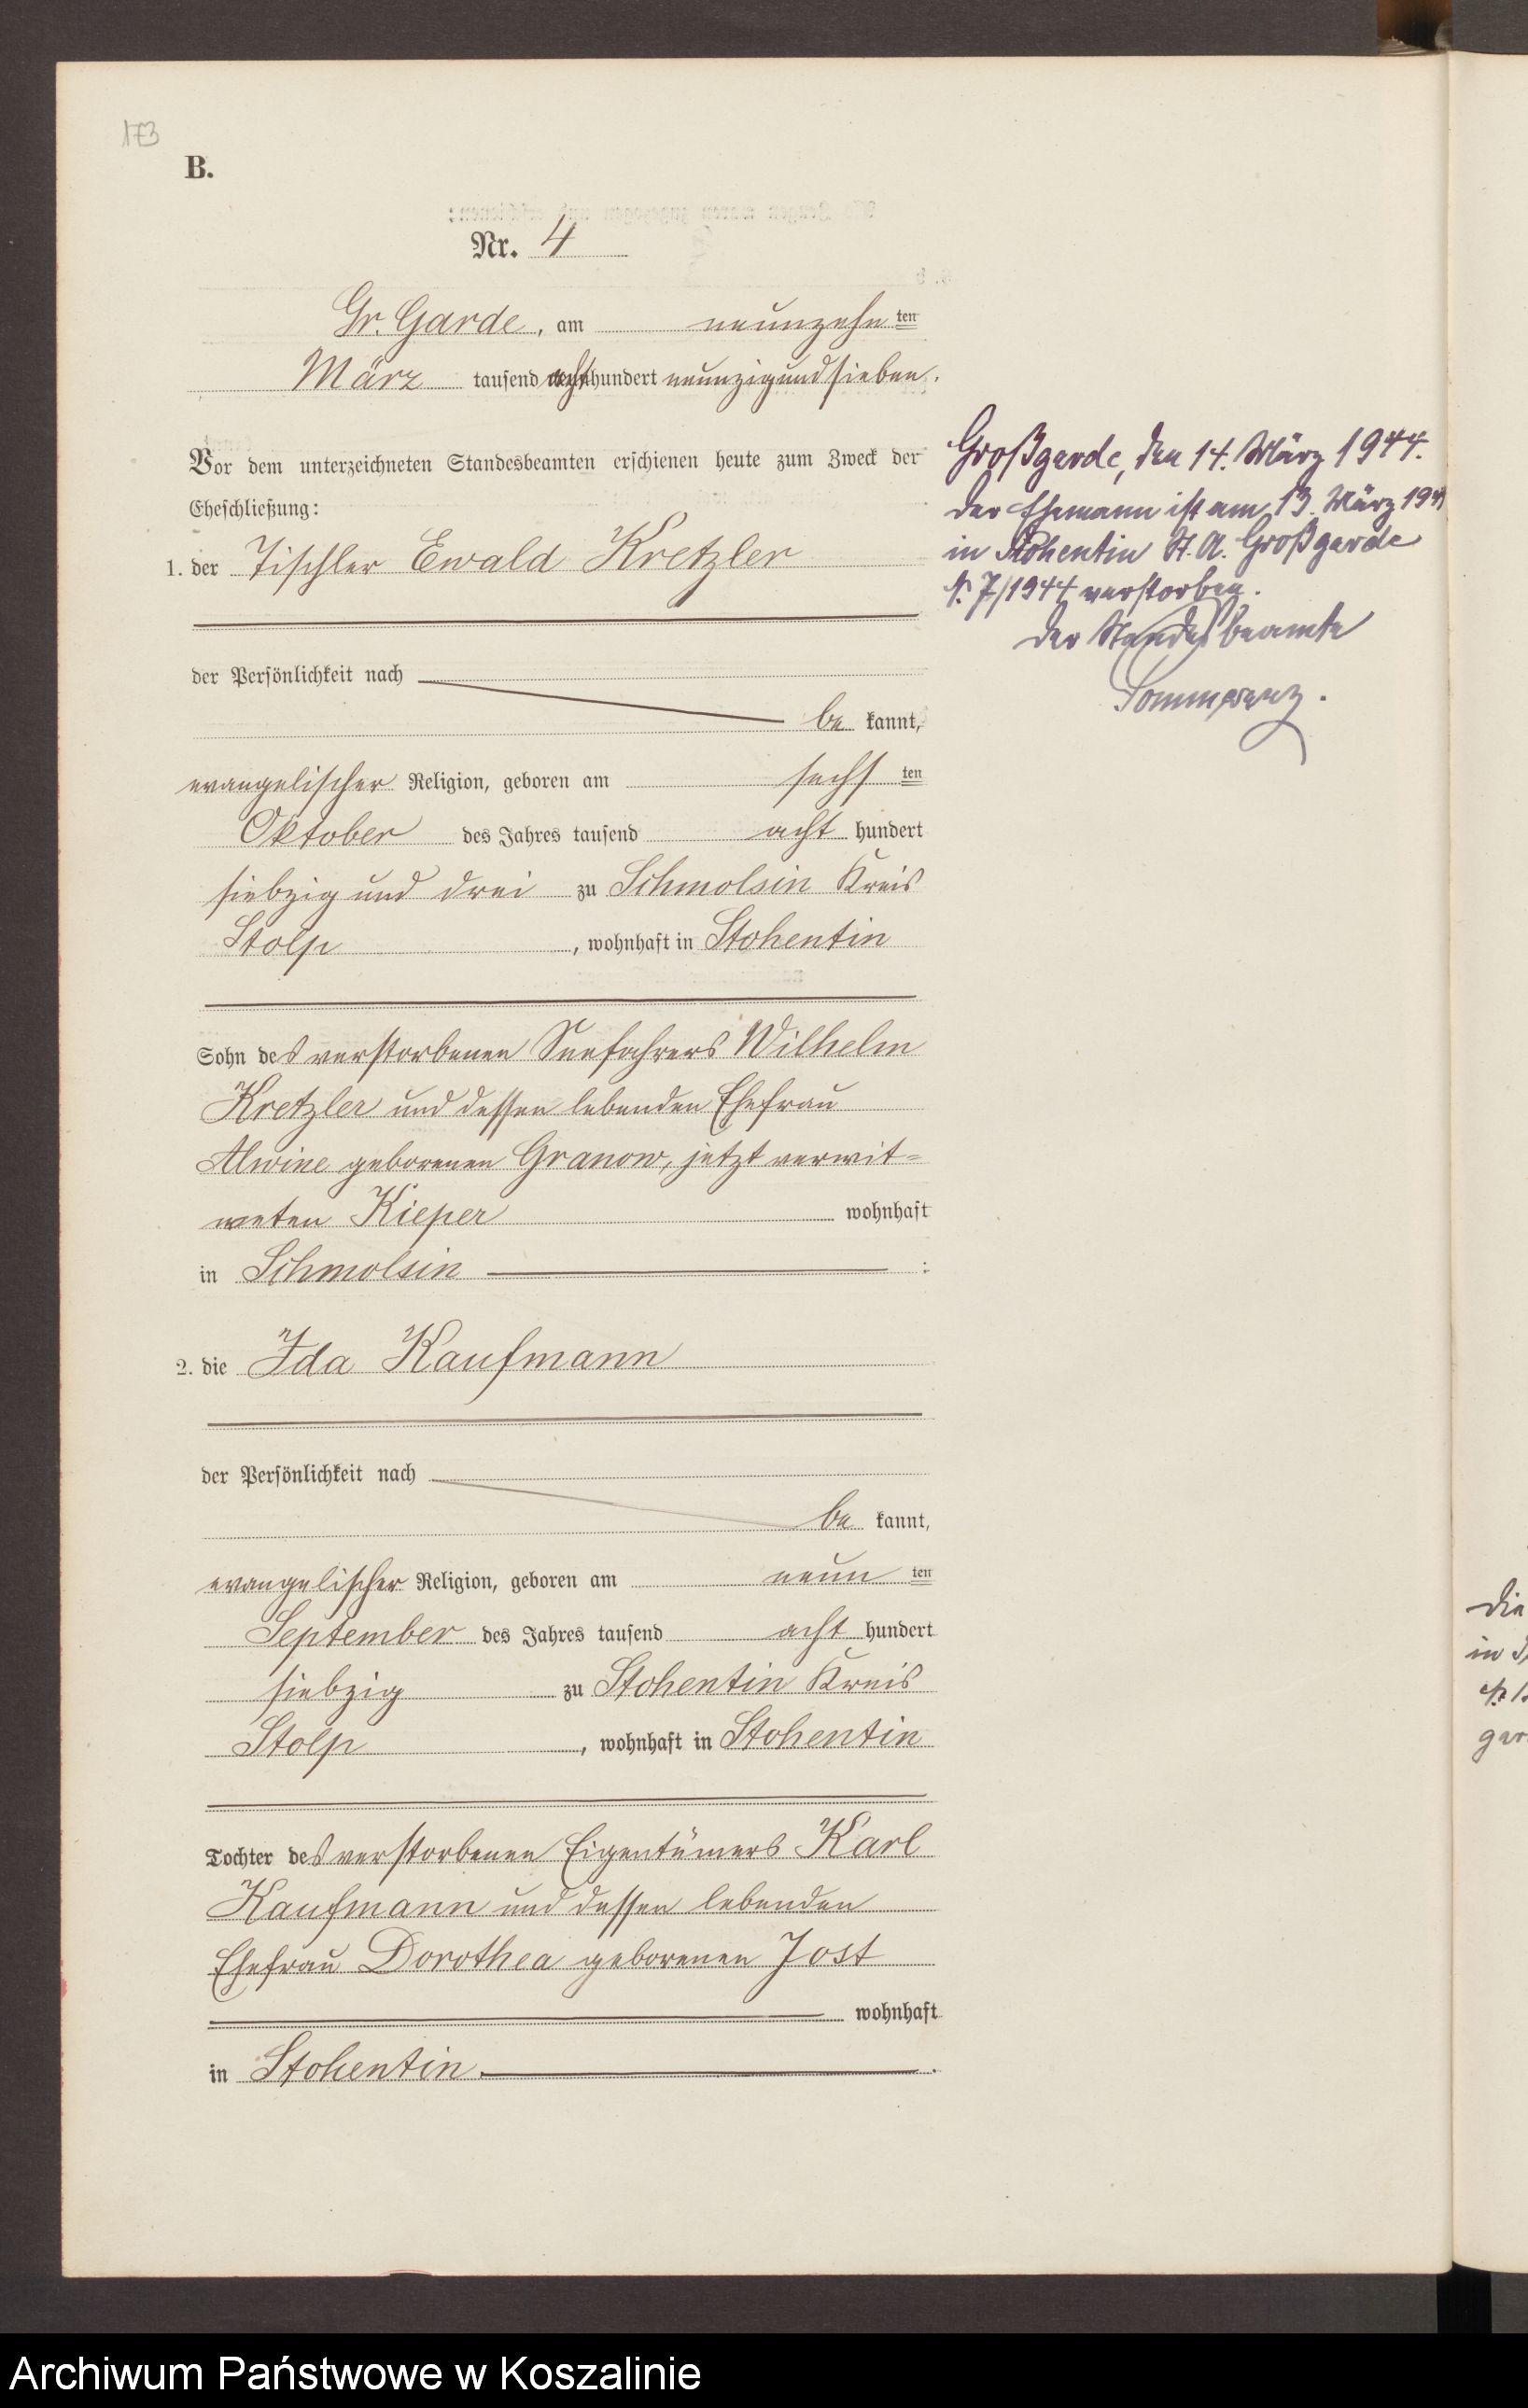 173
B.
Nr. 4
Gr. Garde, am neunzehn ten
März tausend achthundert neunzig und sieben.
Vor dem unterzeichneten Standesbeamten erschienen heute zum Zweck der
Eheschließung:
1. der Tischler Ewald Kretzler
der Persönlichkeit nach
be kannt,
evangelischer Religion, geboren am sechs ten
Oktober des Jahres tausend acht hundert
siebzig und drei zu Schmolsin Kreis
Stolp, wohnhaft in Stohentin
Sohn des verstorbenen Seefahrers Wilhelm
Kretzler und dessen lebenden Ehefrau
Alwine geborenen Granow, jetzt verwit=
weten Kieper wohnhaft
in Schmolsin :
2. die Ida Kaufmann
der Persönlichkeit nach
be kannt,
evangelischer Religion, geboren am neun ten
September des Jahres tausend acht hundert
siebzig zu Stohentin Kreis
Stolp, wohnhaft in Stohentin
Tochter des verstorbenen Eigentümers Karl
Kaufmann und dessen lebenden
Ehefrau Dorothea geborenen Jost
wohnhaft
in Stohentin.
Großgarde, den 14. März 1944.
Der Ehemann ist am 13. März 194
in Stohentin St. A. Großgarde
N. 7/1944 verstorben.
Der Standesbeamte
Die
in
Archiwum Państwowe w Koszalinie